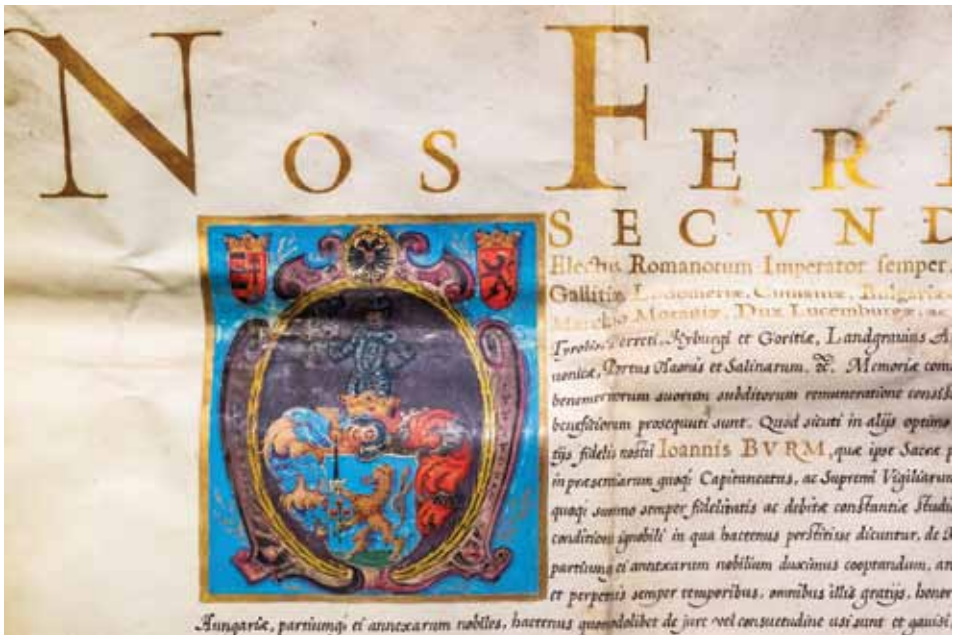 NOS FER
SECVND
Electus Romanorum Imperator semper
Gallitiæ Lodomeriæ, Cumaniæ, Bulgariæ
Marchio Moraviæ, Dux Lucemburgæ, ac
Tyrolis, Ferreti, Kyburgi et Goritiæ, Landgravius
Portus Naonis et Salinarum, &c. Memoriæ com
benemeritorum suorum subditorum remuneratione
benefitiorum prosequuti sunt. Quod sicuti in alijs optimo
tijs fidelis nostri Ioannis BVRM, quæ ipse Sacræ
in præsentiarum quoqȝ Capitaneatus, ac Supremi Vigiliarum
quoqȝ summo semper fidelitatis ac debitæ constantiæ Studi
conditioni ignobili in qua hactenus perstitisse dicuntur, de
partiumqȝ ei annexarum nobilium duximus cooptandum, an
et perpetuis semper temporibus, omnibus illis gratijs, honor
Hungariæ, partiumqȝ ei annexarum nobiles, hactenus quomodolibet de jure vel consuetudine usi sunt et gavisi